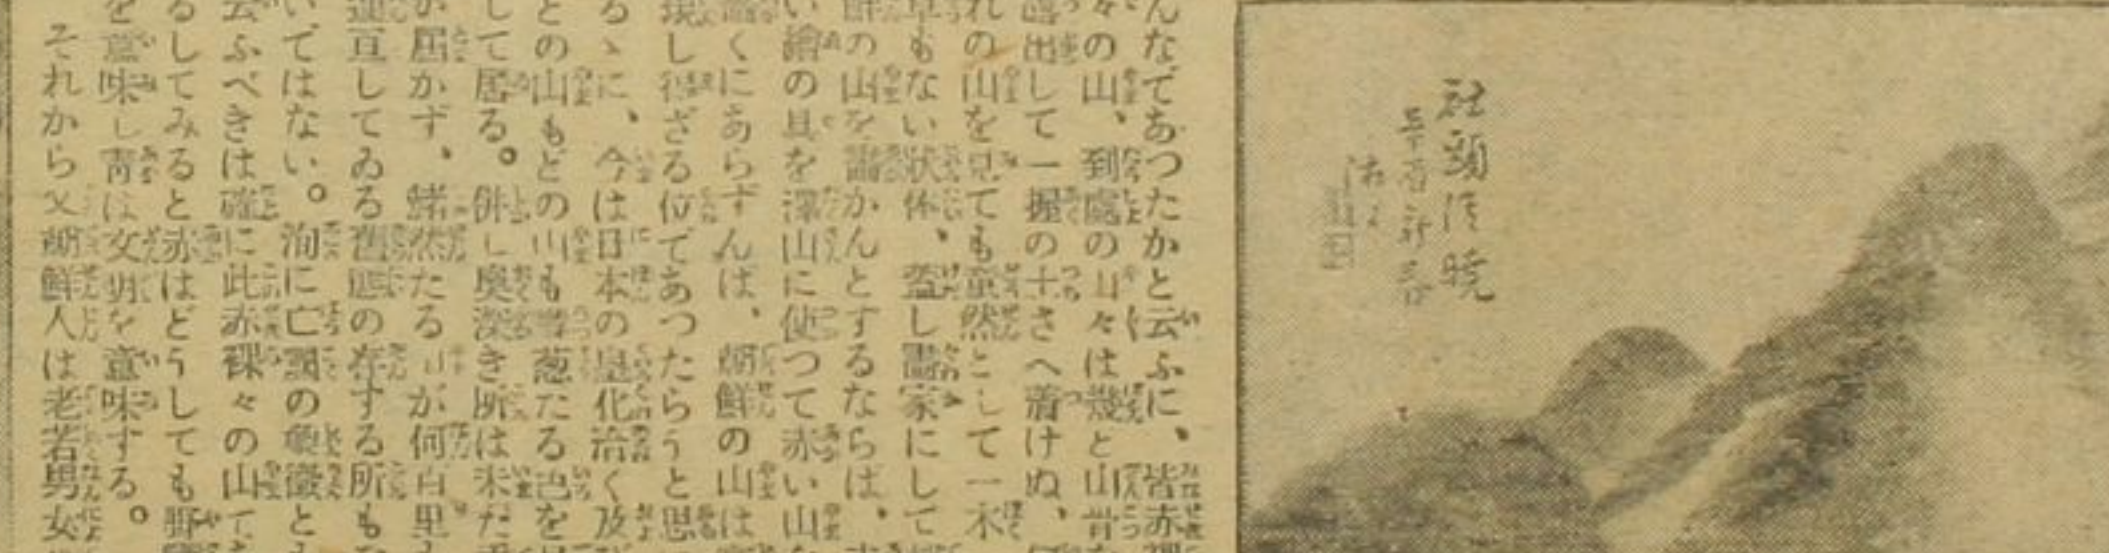 社頭
暁
んなであつたかと云ふに、皆赤裸
々の山、到處の山々は幾と山骨
露出して一握の土さへ着けぬ、
れの山を見ても童然として一木
草もない狀体、蓋し畵家にして
鮮の山を畵かんとするならば、
い繪の具を澤山に使つて赤い山
畵くにあらずんば、朝鮮の山は
現し得ざる位であつたらうと思
るゝに、今は日本の皇化洽く及び
との山もどの山も葱たる色を
して居る。併し奧深き所は未だ
か屆かず、赭然たる山が何百里
連亘してゐる舊態の存する所も
いではない。洵に亡國の象徵と
云ふべきは確に此赤裸々の山で
るしてみると赤はどうしても野
を意味し靑は文明を意味する。
それから又朝鮮人は老若男女